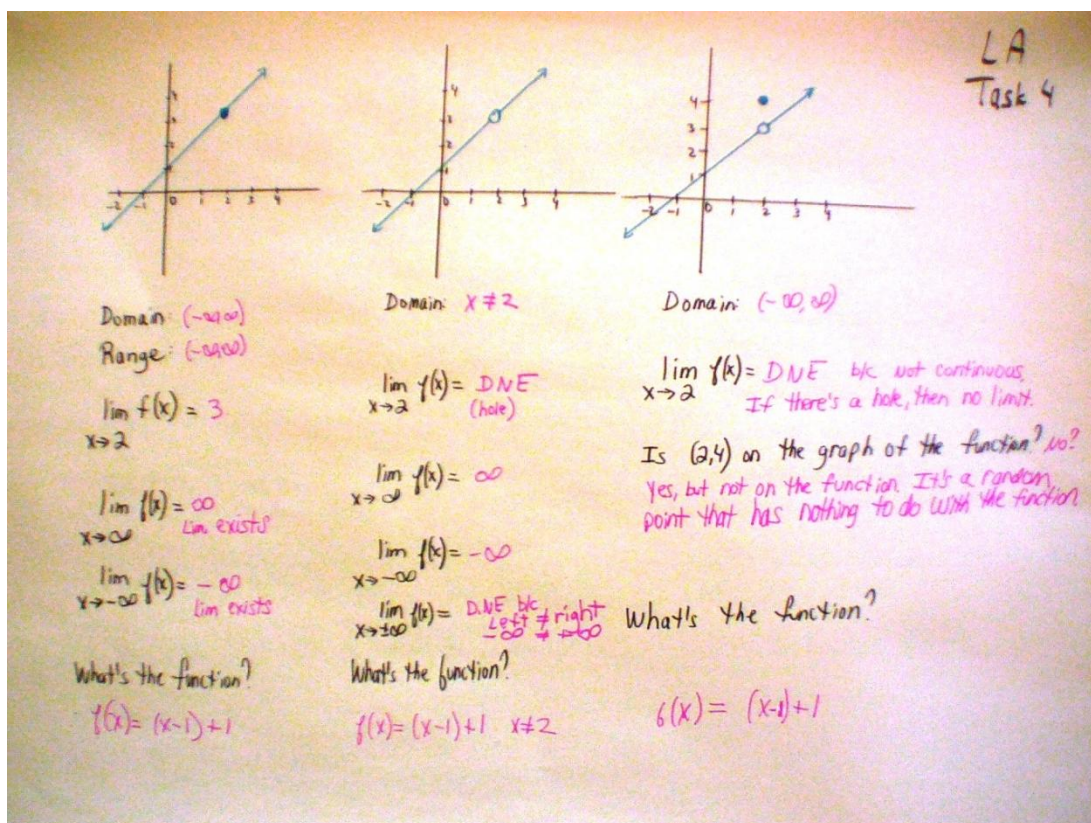 LA
Task 4
4
3
2
1
-2 -1 0 1 2 3 4
4
3
1
-2 -1 0 1 2 3 4
4
3
2
1
-2 -1 0 1 2 3 4
Domain: (-∞,∞)
Range: (-∞,∞)
lim f(x) = 3
x→2
lim f(x) = ∞
x→∞ Lim exists
lim f(x) = -∞
x→-∞ Lim exists
What's the function?
f(x) = (x-1)+1
Domain: x≠2
lim f(x) = DNE
x→2 (hole)
lim f(x) = ∞
x→∞
lim f(x) = -∞
x→-∞
lim f(x) = DNE b/c
x→±∞ Left ≠ right
-∞ ≠ +∞
What's the function?
f(x) = (x-1)+1 x≠2
Domain: (-∞,∞)
lim f(x) = DNE b/c not continuous.
x→2 If there's a hole, then no limit.
Is (2,4) on the graph of the function? No?
Yes, but not on the function. It's a random
point that has nothing to do with the function
What's the function?
f(x) = (x-1)+1